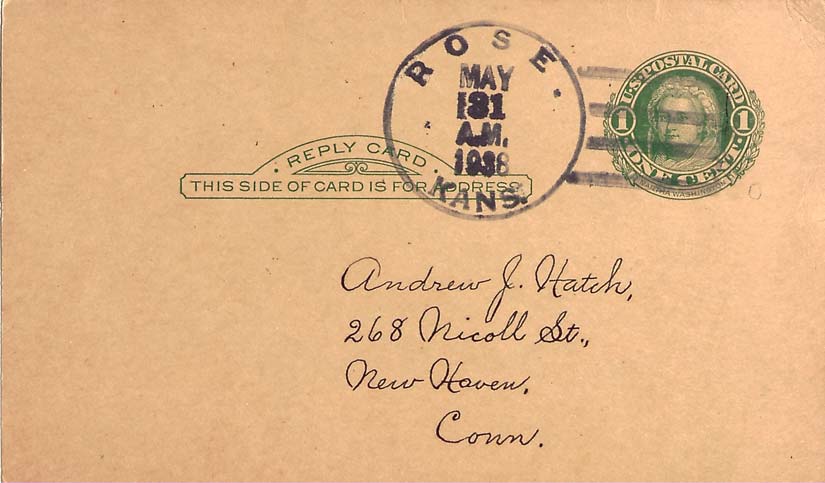 ROSE.
MAY
31
A.M.
1938
KANS.
U.S. POSTAL CARD
1 1
ONE CENT
MARTHA WASHINGTON
REPLY CARD
THIS SIDE OF CARD IS FOR ADDRESS
Andrew J. Hatch,
268 Nicoll St.,
New Haven,
Conn.